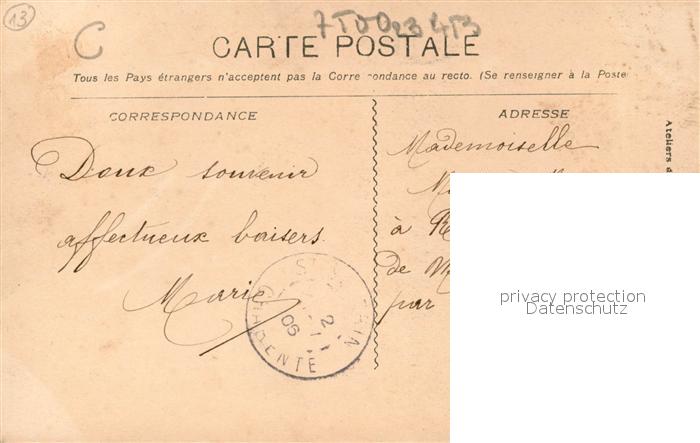 13
C
CARTE POSTALE
Tous les Pays étrangers n'acceptent pas la Corre ondance au recto. (Se renseigner à la Poste
CORRESPONDANCE
ADRESSE
Doux souvenir
affectueux baisers.
Marie
Mademoiselle
à
de
par
CHARENTE
2
06
Ateliers d
privacy protection
Datenschutz